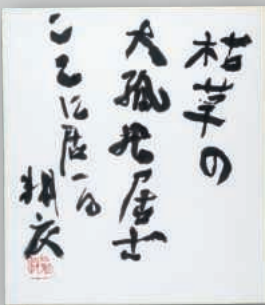 枯草の
大孤独居士
ここに居る
耕衣